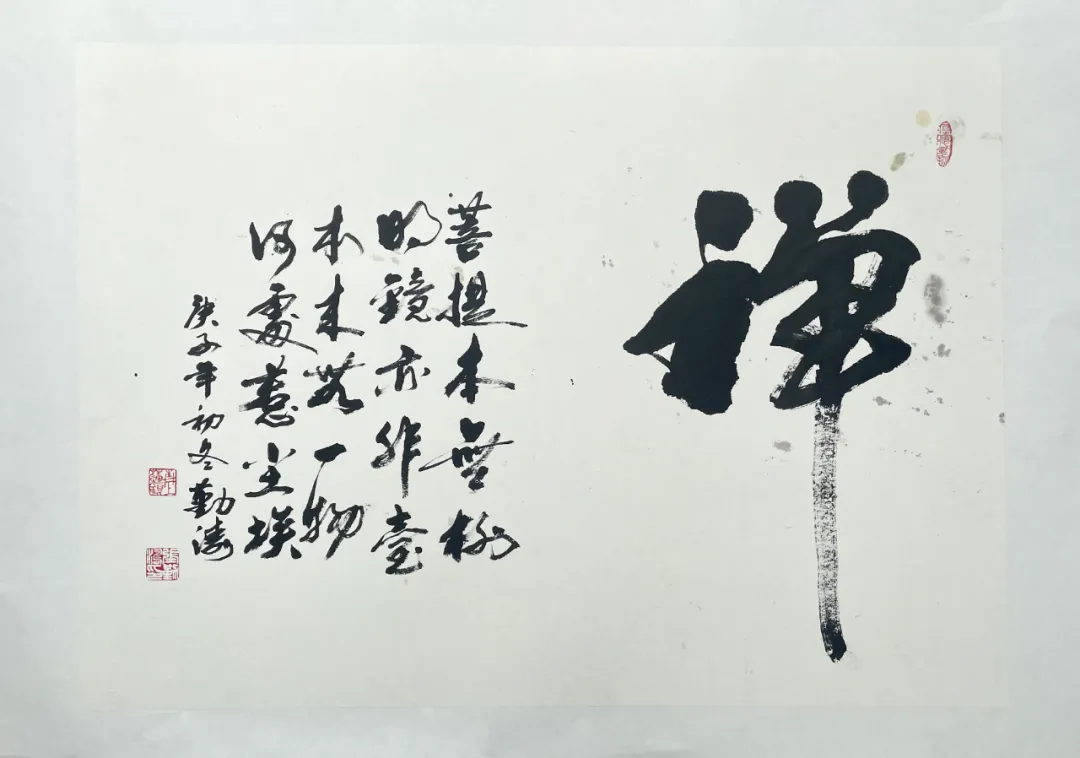 禅
菩提本無樹
明鏡亦非臺
本来無一物
何處惹尘埃
庚子年初冬勤濤